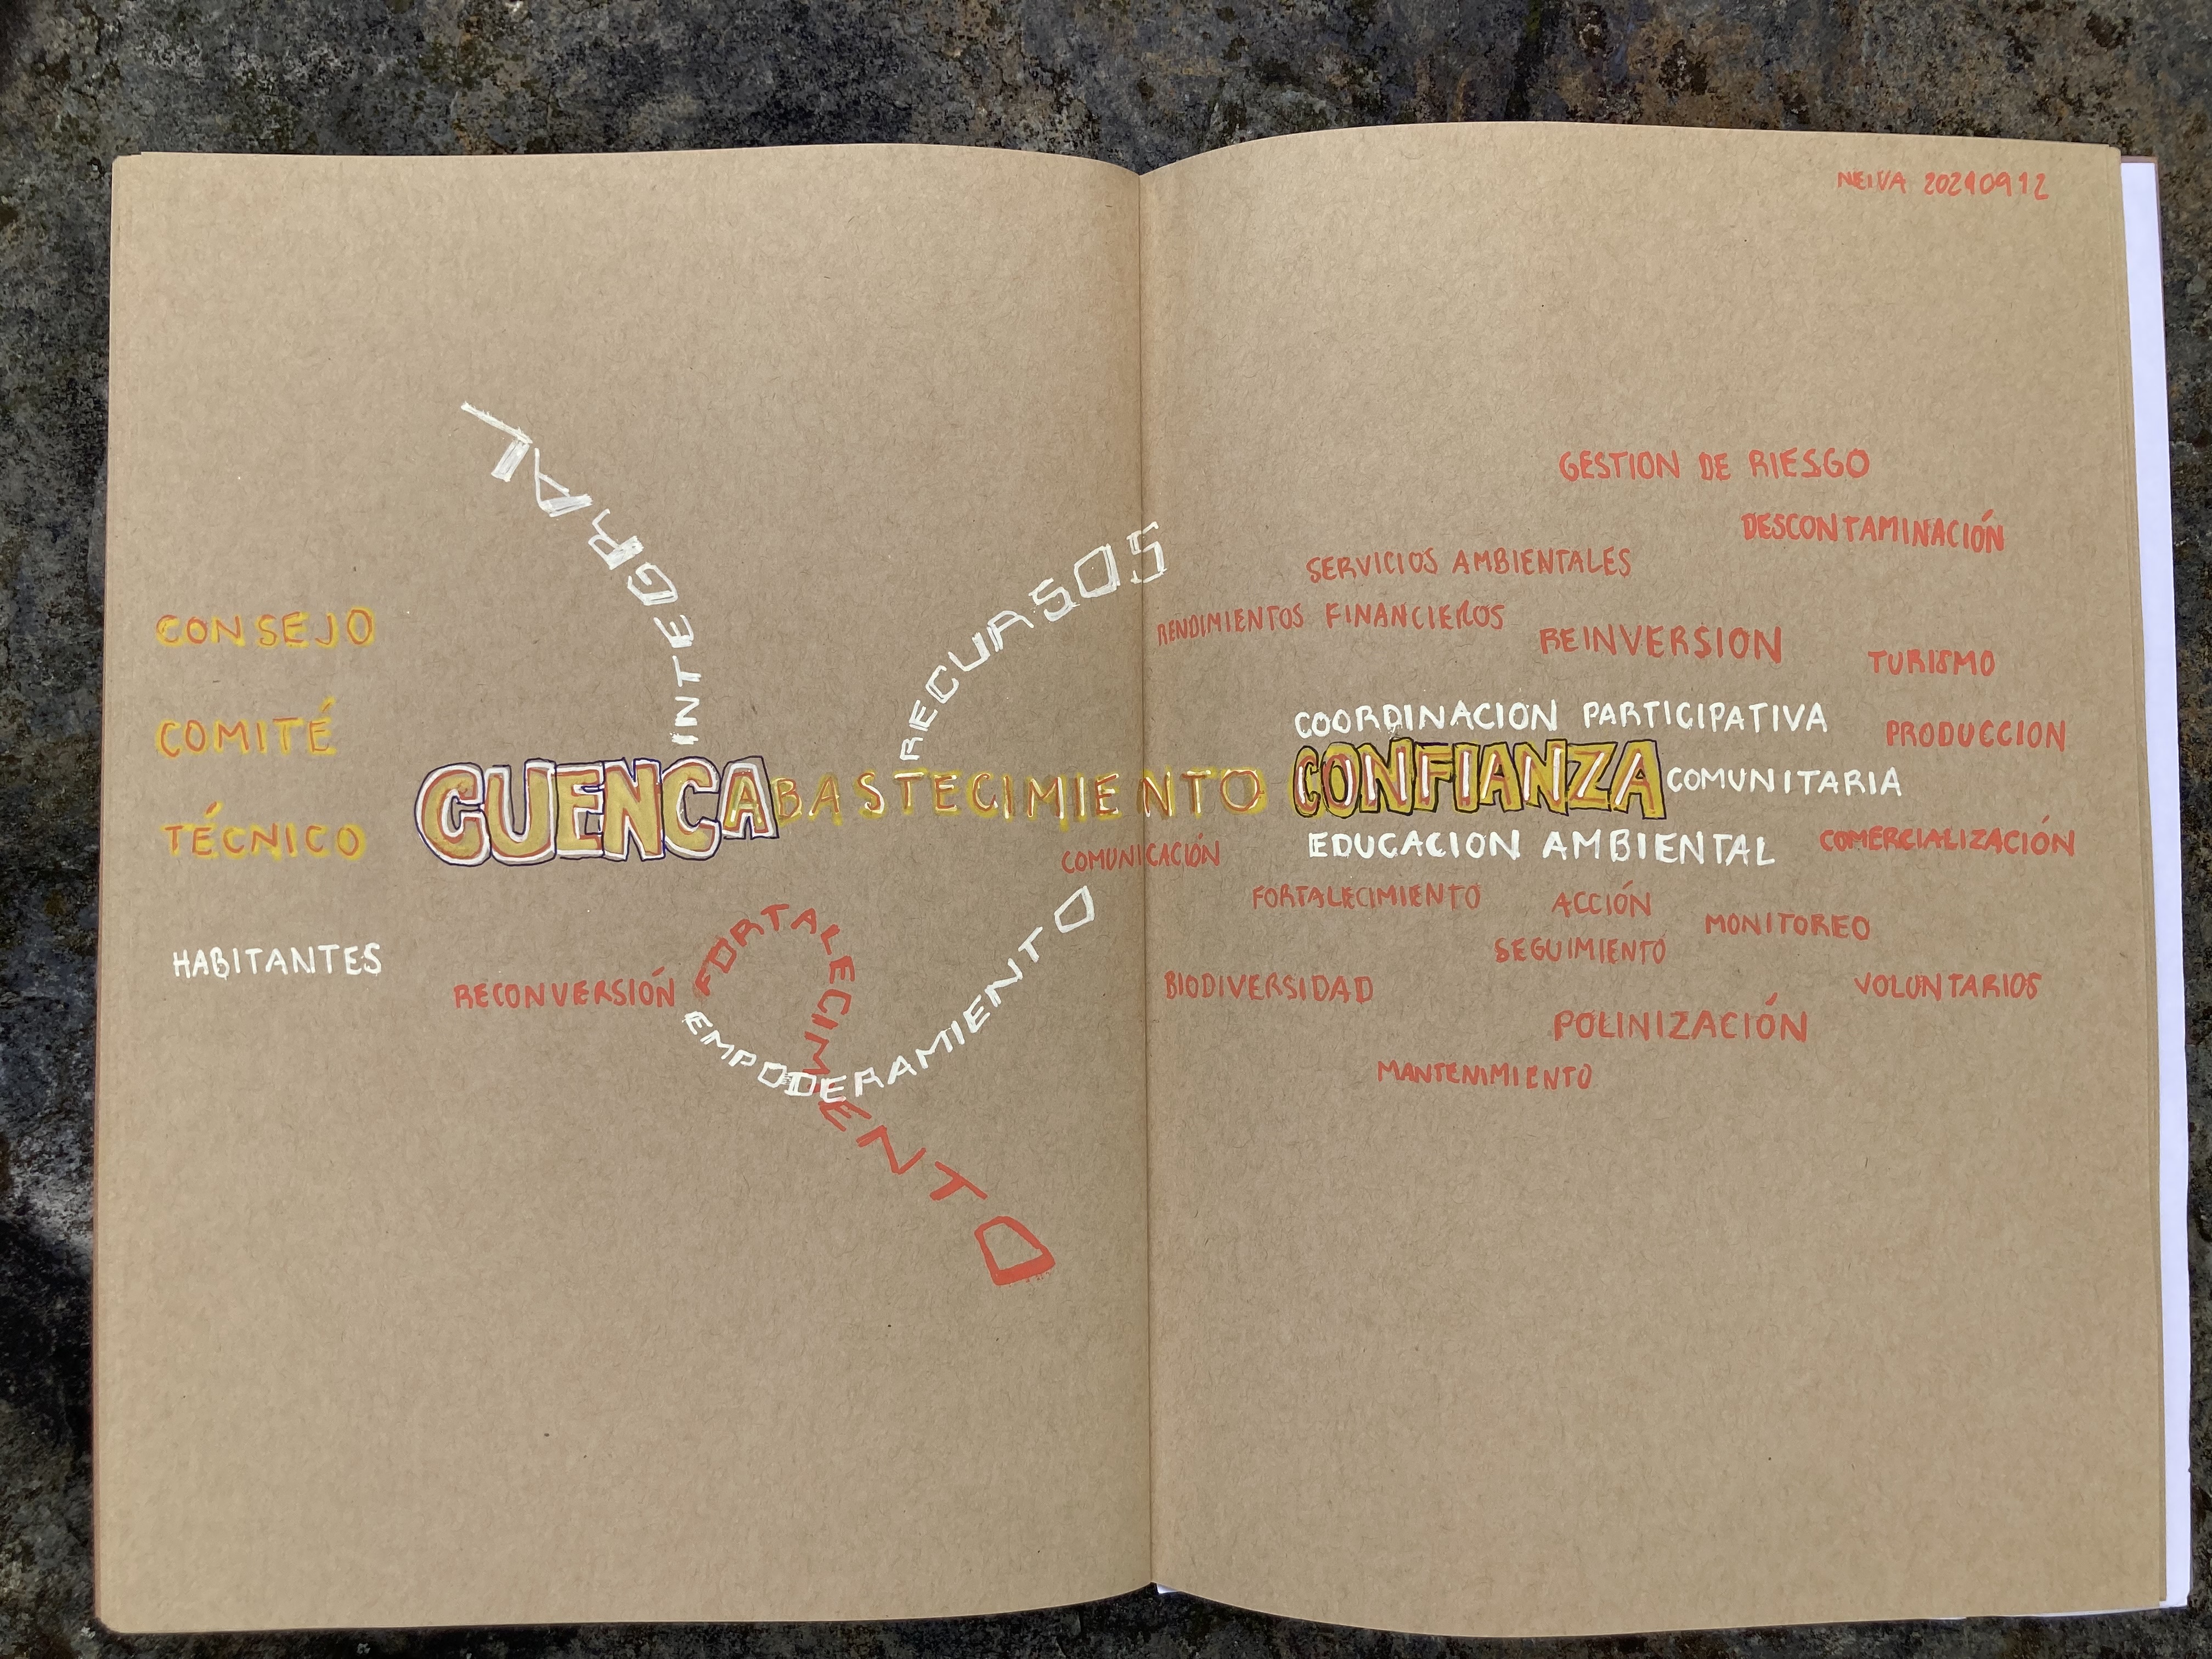 NEIVA 20210912
INTEGRAL
RECURSOS
CONSEJO
COMITÉ
TÉCNICO
HABITANTES
CUENCA
ABASTECIMIENTO
RECONVERSIÓN
FORTALECIMIENTO
EMPODERAMIENTO
GESTION DE RIESGO
DESCONTAMINACIÓN
SERVICIOS AMBIENTALES
RENDIMIENTOS FINANCIEROS
REINVERSION
TURISMO
COORDINACION PARTICIPATIVA
PRODUCCION
CONFIANZA
COMUNITARIA
EDUCACION AMBIENTAL
COMERCIALIZACIÓN
COMUNICACIÓN
FORTALECIMIENTO
ACCIÓN
MONITOREO
SEGUIMIENTO
BIODIVERSIDAD
VOLUNTARIOS
POLINIZACIÓN
MANTENIMIENTO